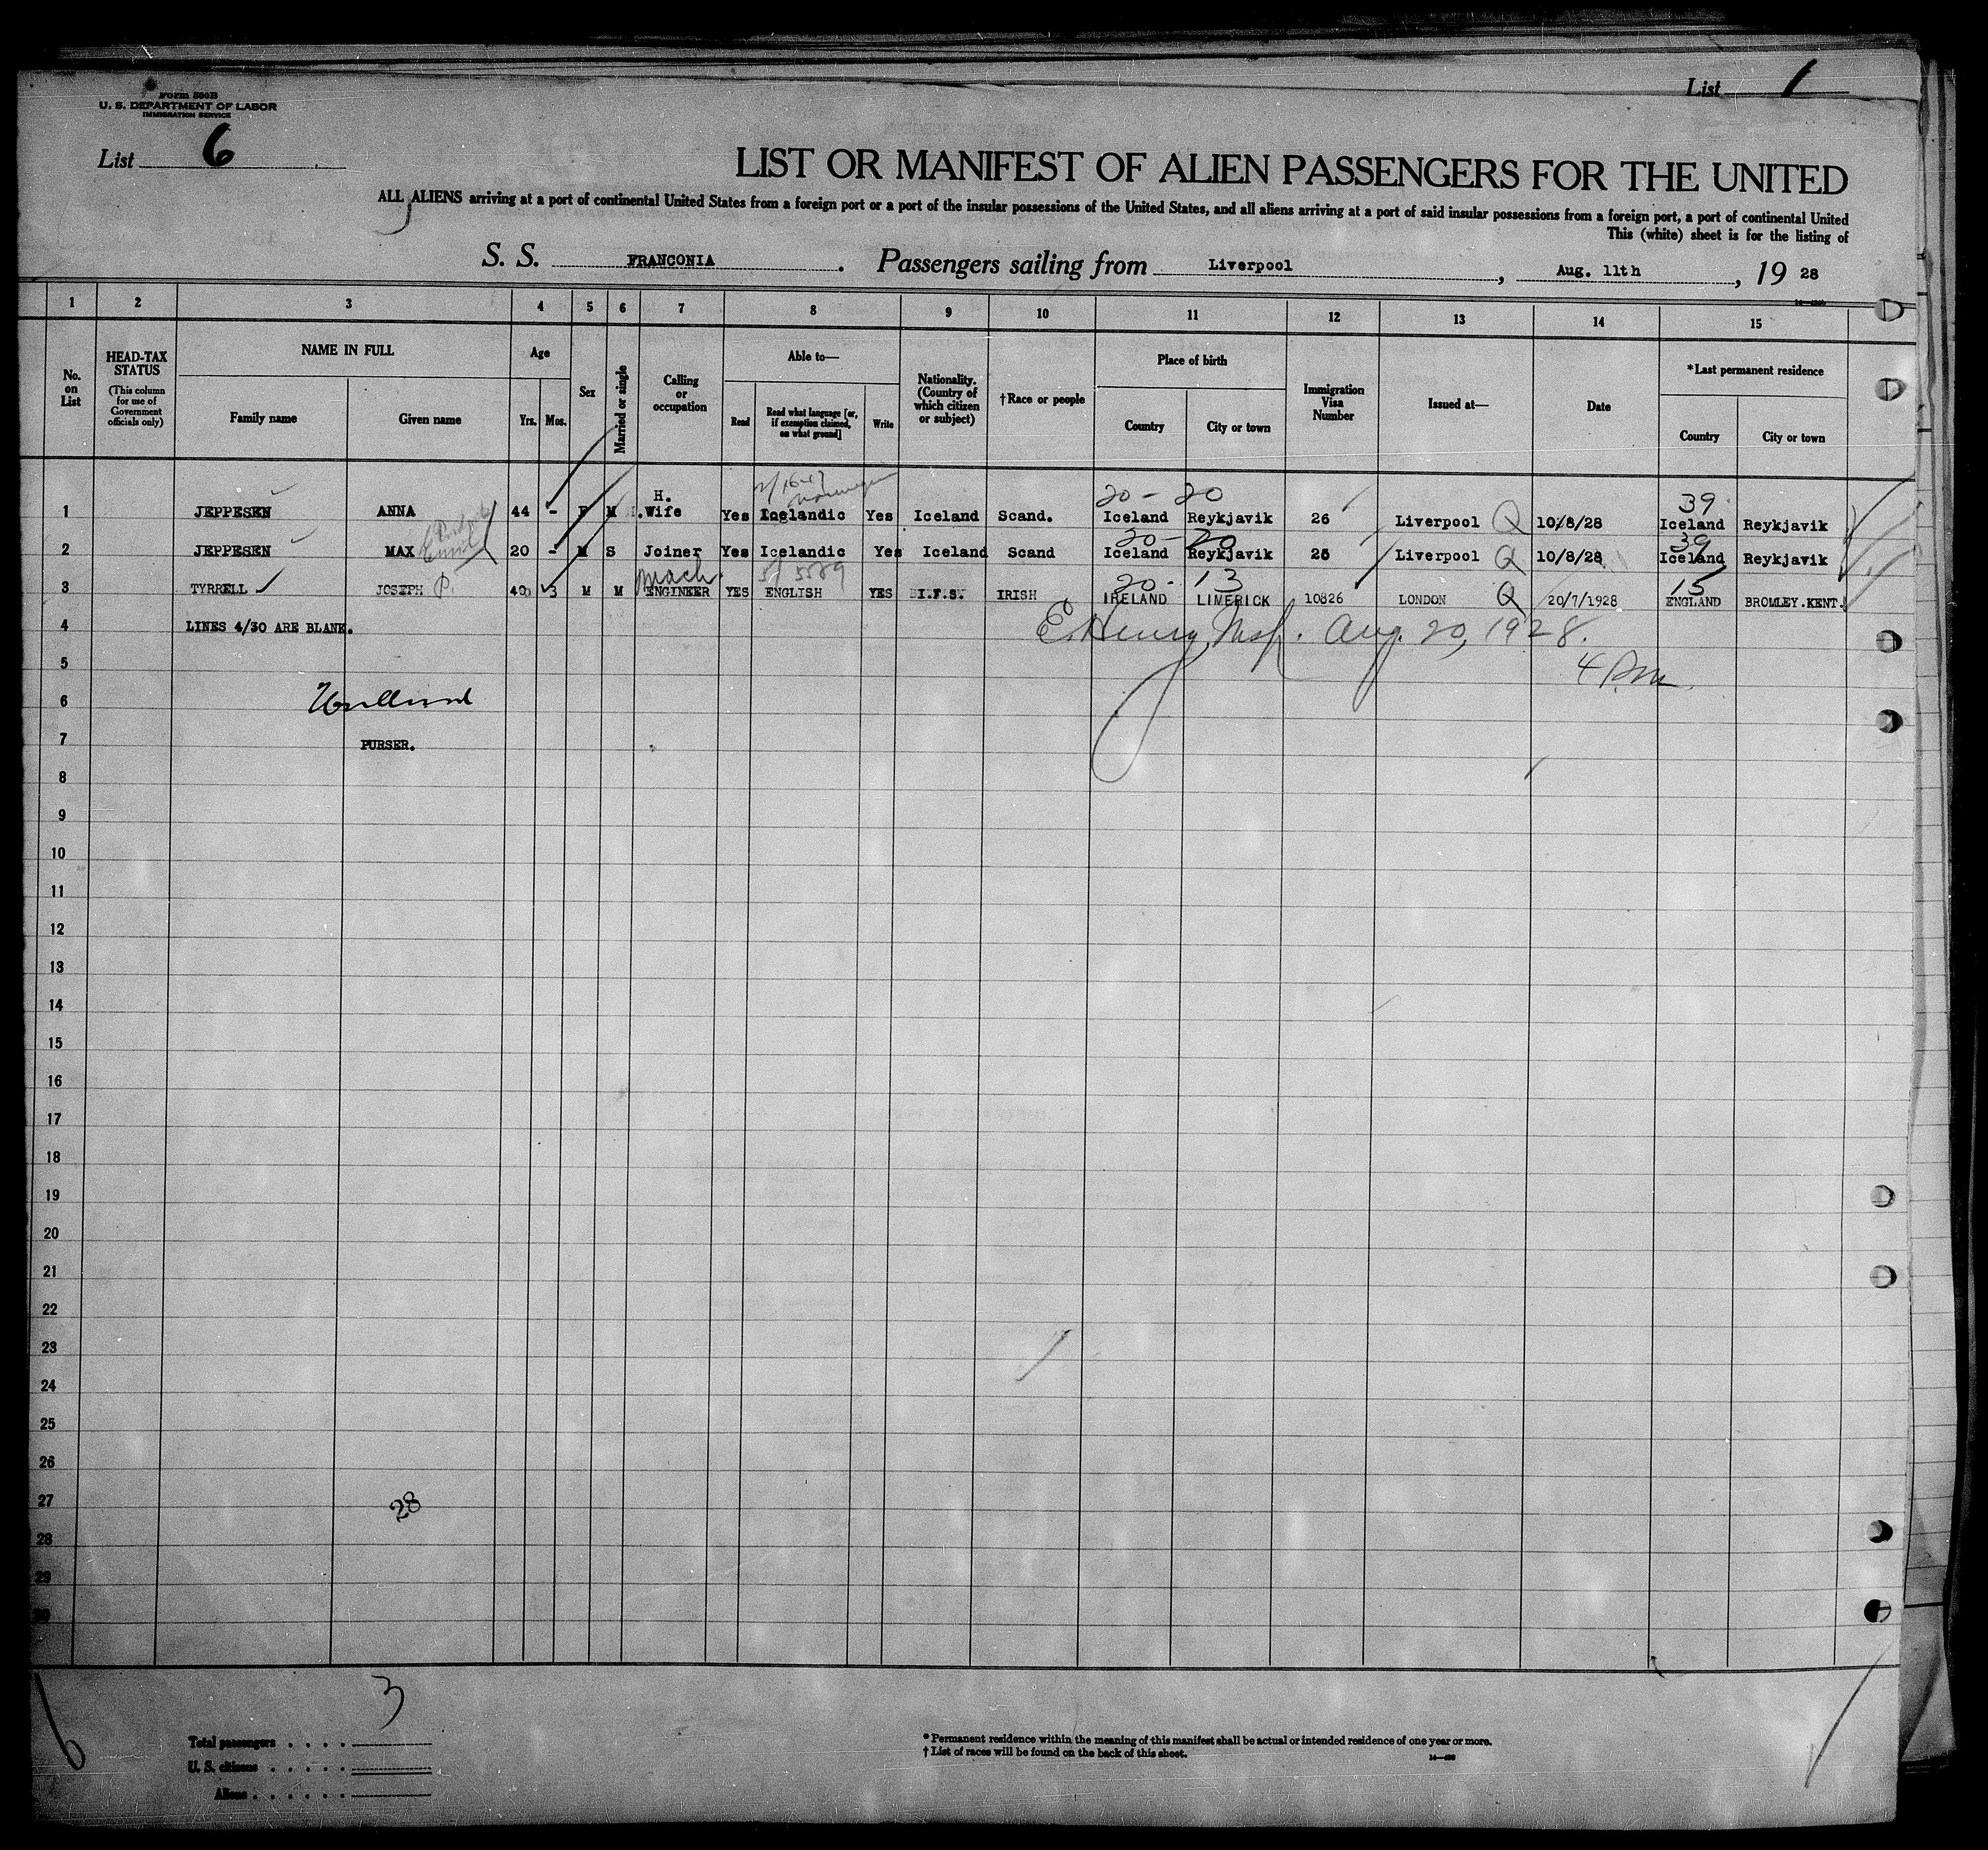 Form 500B
U. S. DEPARTMENT OF LABOR
IMMIGRATION SERVICE
List 6
List 1
LIST OR MANIFEST OF ALIEN PASSENGERS FOR THE UNITED
ALL ALIENS arriving at a port of continental United States from a foreign port or a port of the insular possessions of the United States, and all aliens arriving at a port of said insular possessions from a foreign port, a port of continental United
This (white) sheet is for the listing of
S. S. FRANCONIA. Passengers sailing from Liverpool, Aug. 11th, 19 28
1 2 3 4 5 6 7 8 9 10 11 12 13 14 15
No. on List
HEAD-TAX STATUS
(This column for use of Government officials only)
NAME IN FULL
Family name
Given name
Age
Yrs. Mos.
Sex
Married or single
Calling or occupation
Able to—
Read
Read what language [or, if exemption claimed, on what ground]
Write
Nationality. (Country of which citizen or subject)
†Race or people
Place of birth
Country
City or town
Immigration Visa Number
Issued at—
Date
*Last permanent residence
Country
City or town
20 - 20
39
1 JEPPESEN ANNA 44 - F M H. Wife Yes Icelandic Yes Iceland Scand. Iceland Reykjavik 26 Liverpool Q 10/8/28 Iceland Reykjavik
20 - 20
39
2 JEPPESEN MAX 20 - M S Joiner Yes Icelandic Yes Iceland Scand Iceland Reykjavik 25 Liverpool Q 10/8/28 Iceland Reykjavik
mach. 5/ 5589
20 - 13
15
3 TYRRELL JOSEPH P. 40 3 M M ENGINEER YES ENGLISH YES I.F.S. IRISH IRELAND LIMERICK 10826 LONDON Q 20/7/1928 ENGLAND BROMLEY.KENT.
4 LINES 4/30 ARE BLANK.
E. Henry, Insp. Aug. 20, 1928.
4 P.m.
5
6
7 PURSER.
8
9
10
11
12
13
14
15
16
17
18
19
20
21
22
23
24
25
26
27 28
28
29
30
6
3
Total passengers
U. S. citizens
Aliens
* Permanent residence within the meaning of this manifest shall be actual or intended residence of one year or more.
† List of races will be found on the back of this sheet.